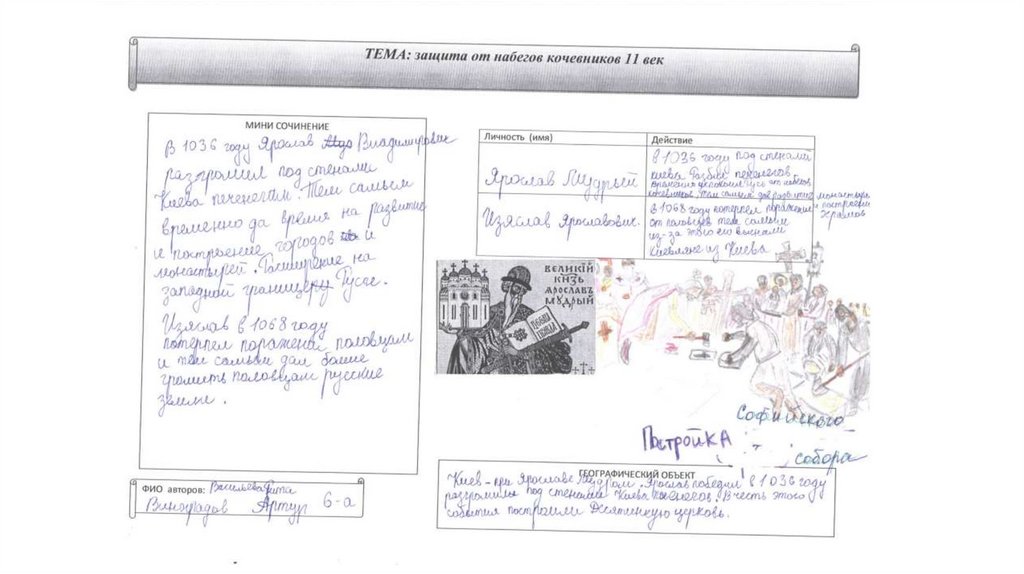 ТЕМА: защита от набегов кочевников 11 век
МИНИ СОЧИНЕНИЕ
В 1036 году Ярослав Владимирович
разгромил под стенами
Киева печенегам. Тем самым
временно да время на развитие
и построение городов и
монастырей. Расширение на
западной границы Руси.
Изяслав в 1068 году
потерпел поражение половцам
и тем самым дал более
громить половцам русские
земли.
ФИО авторов: Васильева
Виноградов Артур 6-а
Личность (имя) Действие
Ярослав Мудрый
в 1036 году под стенами
Киева разбил печенегов.
кочевников, тем самым дав развитие монастырям
и построению
храмов
Изяслав Ярославович.
в 1068 году потерпел поражение
от половцев тем самым
из-за этого его выгнали
киевляне из Киева
ВЕЛИКІЙ
КНЗЬ
ЯРОСЛАВЪ
МУДРЫЙ
Постройка
Софийского
собора
ГЕОГРАФИЧЕСКИЙ ОБЪЕКТ
Киев - при Ярославе Мудром. Ярослав победил в 1036 году
разгромил под стенами Киева печенегов. В честь этого
события построили Десятинную церковь.